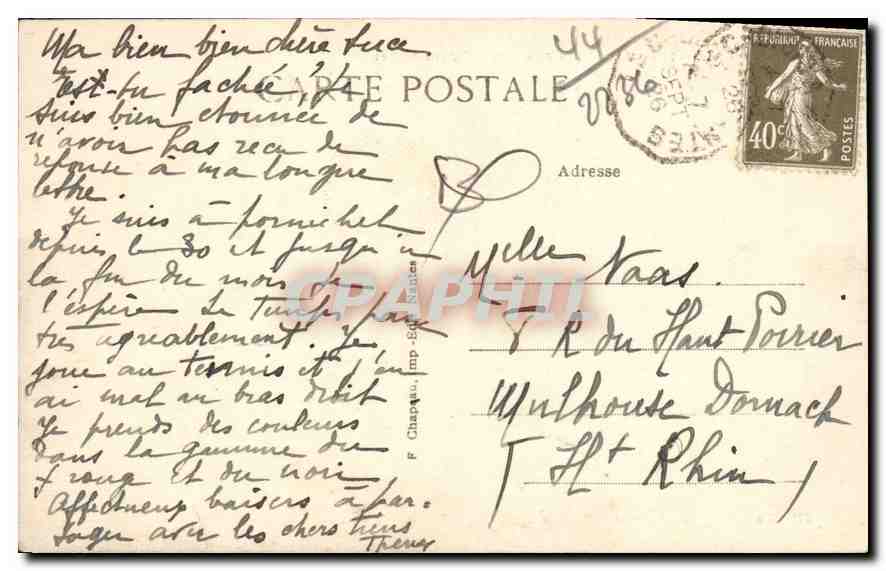 Ma bien bien chère Luce
T'es-tu fachée, Je
suis bien étonnée de
n'avoir pas reçu de
réponse à ma longue
lettre.
Je suis à pornichet
depuis le 30 et jusqu'à
la fin du mois je
l'espère Le temps passe
très agréablement. Je
joue au tennis et j'en
ai mal au bras droit
Je prends des couleurs
dans la gamme du
rouge et du noir
Affectueux baisers à par-
tager avec les chers tiens
CARTE POSTALE
44
22
Adresse
REPUBLIQUE FRANÇAISE
40c
POSTES
SEPT
26
Mlle Naas.
5 R du Haut Poirier
Mulhouse Dornach
(Ht Rhin)
F Chapeau, Imp.-Edit. Nantes
CPAPHIL